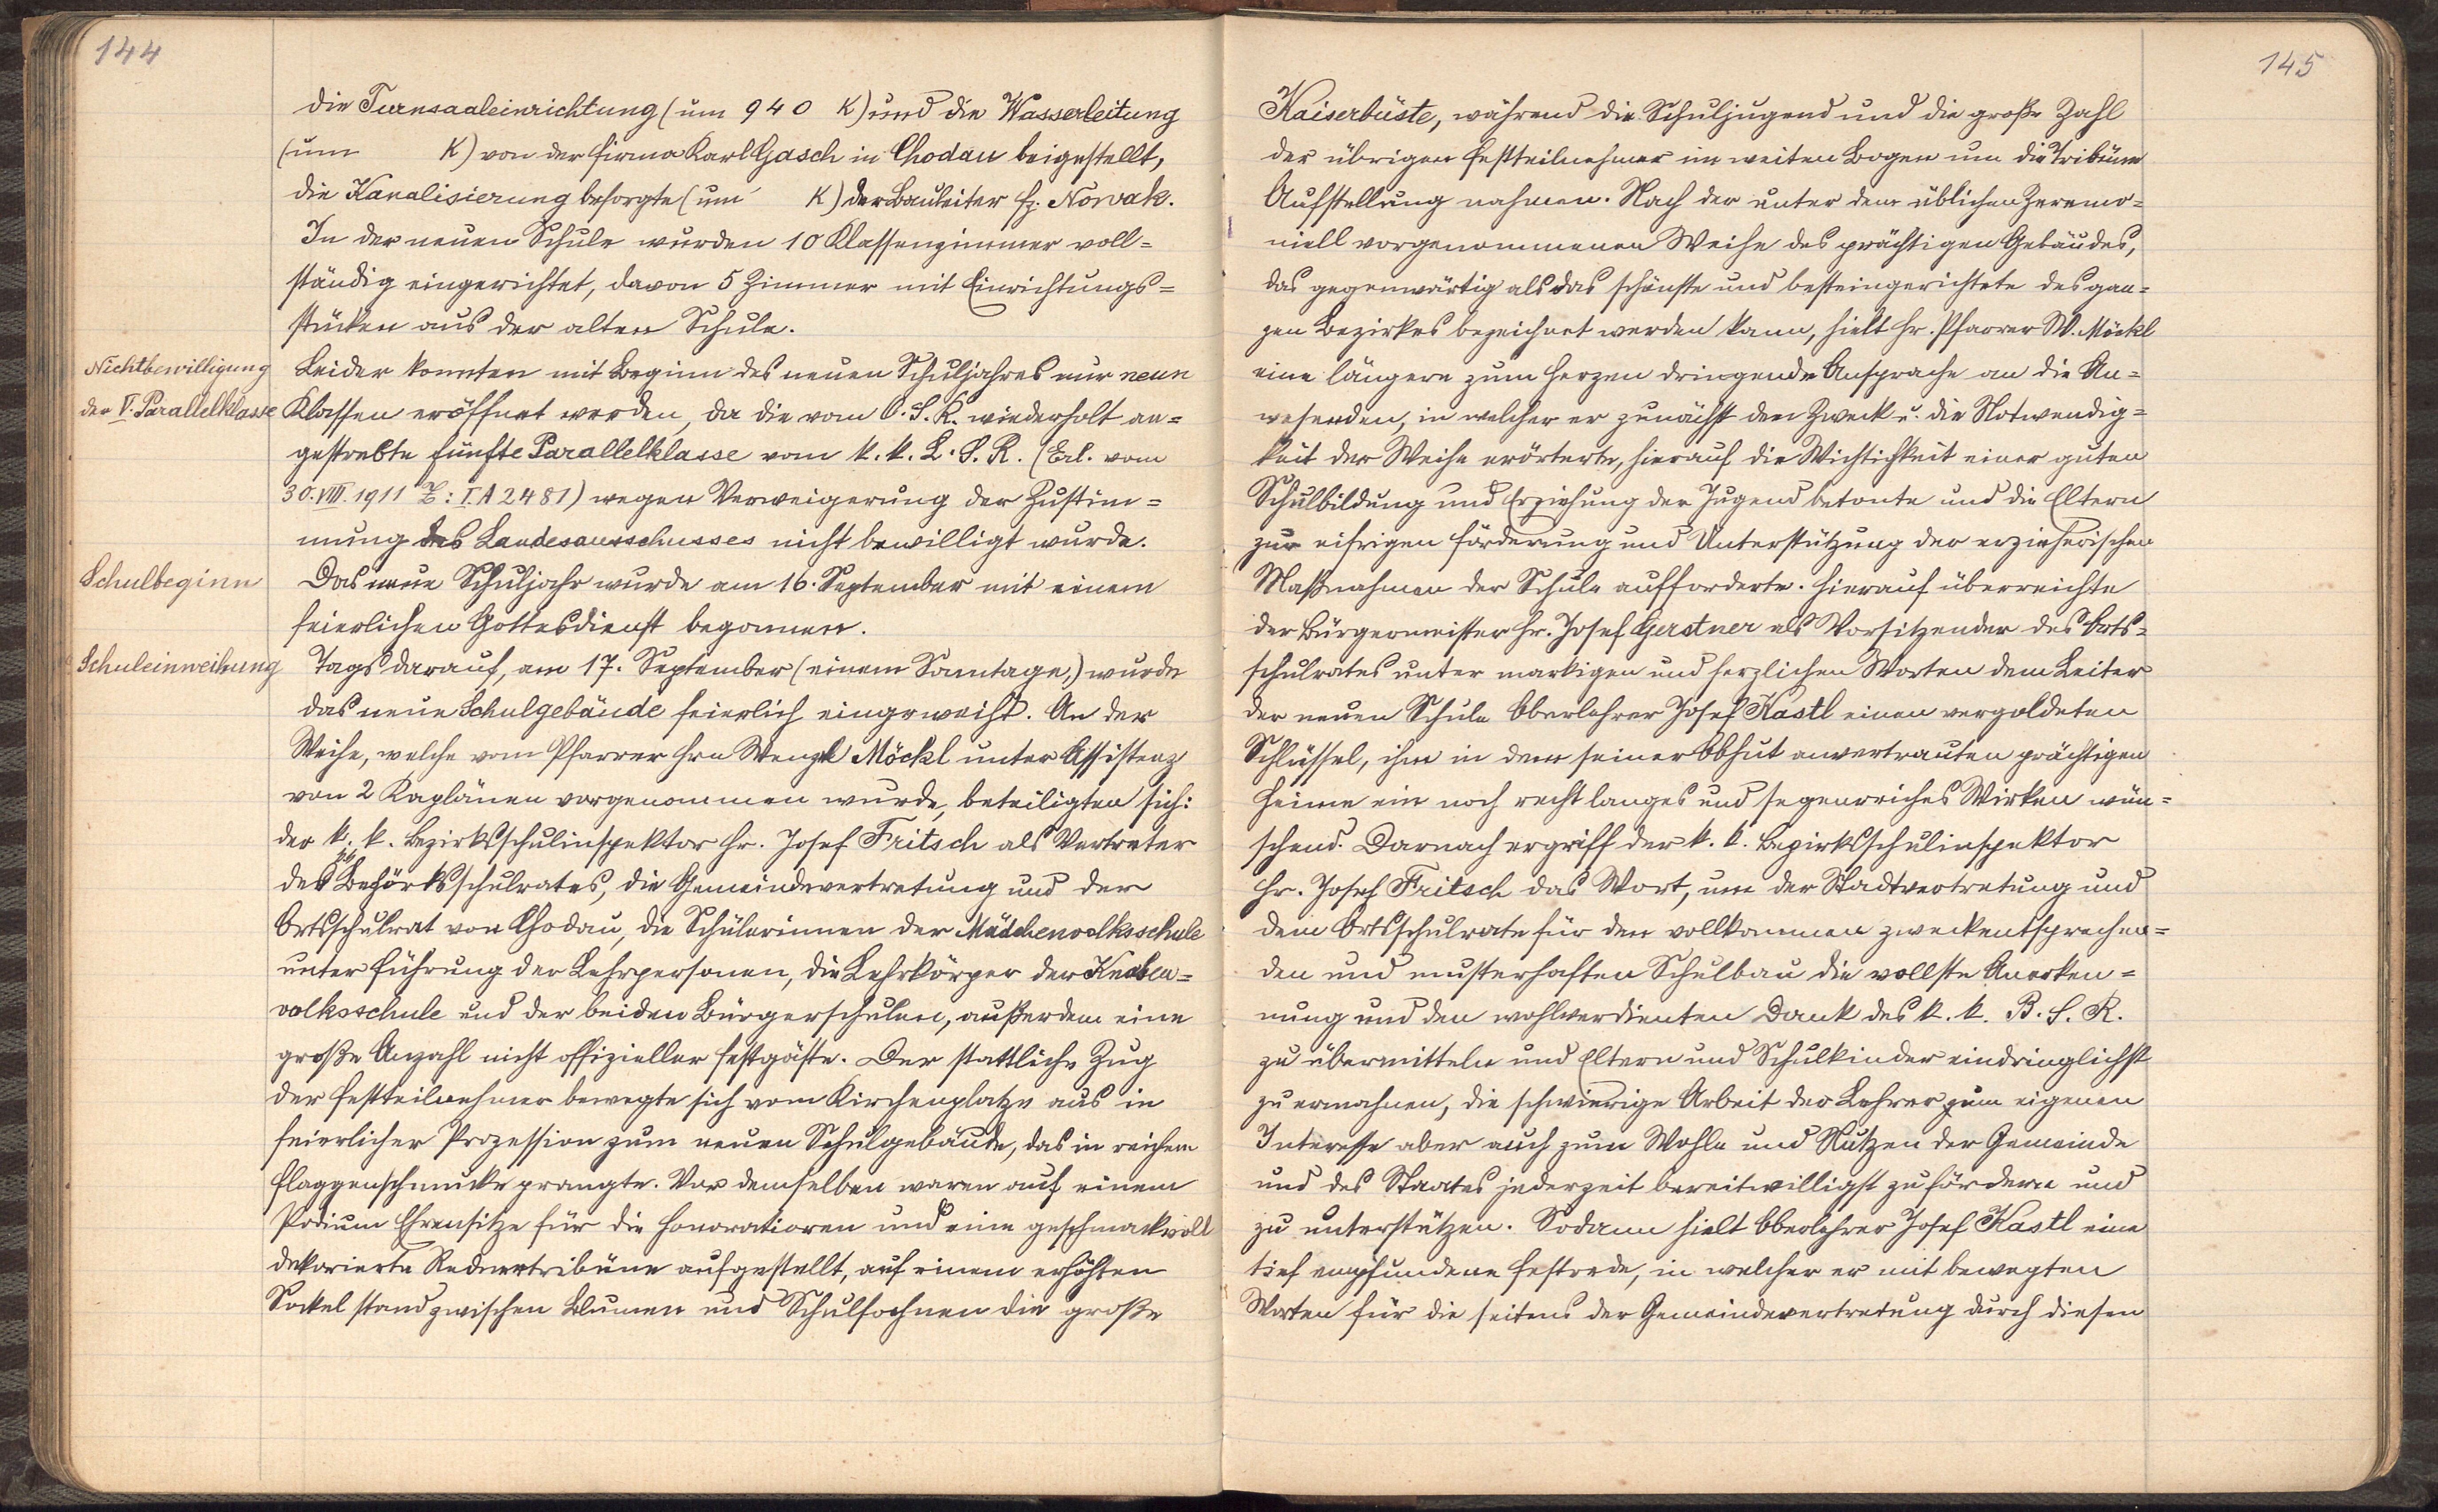 144
die Turnsaaleinrichtung (um 940 K) und die Wasserleitung
(um K) von der Firma Karl Gasch in Chodau beigestellt,
die Kanalisierung besorgte (um K) der Bauleiter H. Nowak.
In der neuen Schule wurden 10 Klassenzimmer voll=
ständig eingerichtet, davon 5 Zimmer mit Einrichtungs=
stücken aus der alten Schule.
Nichtbewilligung
der V. Parallelklasse
Leider konnten mit Beginn des neuen Schuljahres nur neun
Klassen eröffnet werden, da die vom O.S.R. wiederholt an=
gestrebte fünfte Parallelklasse vom k.k. L.S.R. (Erl. vom
30.VIII.1911 Z: I.A 2481) wegen Verweigerung der Zustim=
mung des Landesausschusses nicht bewilligt wurde.
Schulbeginn
Das neue Schuljahr wurde am 16. September mit einem
feierlichen Gottesdienst begonnen.
Schuleinweihung
Tags darauf, am 17. September (einem Sonntage,) wurde
das neue Schulgebäude feierlich eingeweiht. An der
Weihe, welche vom Pfarrer Hrn Wenzl Möckl unter Assistenz
von 2 Kaplänen vorgenommen wurde, beteiligten sich:
der k. k. Bezirksschulinspektor Hr. Josef Fritsch als Vertreter
des Bezirksschulrates, die Gemeindevertretung und der
Ortsschulrat von Chodau, die Schülerinnen der Mädchenvolksschule
unter Führung der Lehrpersonen, die Lehrkörper der Knaben=
volksschule und der beiden Bürgerschulen, außerdem eine
große Anzahl nicht offizieller Festgäste. Der stattliche Zug
der Festteilnehmer bewegte sich vom Kirchenplatze aus in
feierlicher Prozession zum neuen Schulgebäude, das in reichem
Flaggenschmucke prangte. Vor demselben waren auf einem
Podium Ehrensitze für die Honoratioren und eine geschmackvoll
dekorierte Rednertribüne aufgestellt, auf einem erhöhten
Sockel stand zwischen Blumen und Schulfahnen die große
145
Kaiserbüste, während die Schuljugend und die große Zahl
der übrigen Festteilnehmer im weiten Bogen um die Tribüne
Aufstellung nahmen. Nach der unter dem üblichen Zeremo=
niell vorgenommenen Weihe des prächtigen Gebäudes,
das gegenwärtig als das schönste und besteingerichtete des gan=
zen Bezirkes bezeichnet werden kann, hielt Hr. Pfarrer W. Möckl
eine längere zum Herzen dringende Ansprache an die An=
wesenden, in welcher er zunächst den Zweck u. die Notwendig=
keit der Weihe erörterte, hierauf die Wichtigkeit einer guten
Schulbildung und Erziehung der Jugend betonte und die Eltern
zur eifrigen Förderung und Unterstützung der erzieherischen
Maßnahmen der Schule aufforderte. Hierauf überreichte
der Bürgermeister Hr. Josef Gerstner als Vorsitzender des Orts=
schulrates unter markigen und herzlichen Worten dem Leiter
der neuen Schule Oberlehrer Josef Kastl einen vergoldeten
Schlüssel, ihm in dem seiner Obhut anvertrauten prächtigen
Heime ein noch recht langes und segenreiches Wirken wün=
schend. Darnach ergriff der k. k. Bezirksschulinspektor
Hr. Josef Fritsch das Wort, um der Stadtvertretung und
dem Ortsschulrate für den vollkommen zweckentsprechen=
den und musterhaften Schulbau die vollste Anerken=
nung und den wohlverdienten Dank des k. k. B. S. R.
zu übermitteln und Eltern und Schulkinder eindringlichst
zu ermahnen, die schwierige Arbeit der Lehrer zum eigenen
Interesse aber auch zum Wohle und Nutzen der Gemeinde
und des Staates jederzeit bereitwilligst zu fördern und
zu unterstützen. Sodann hielt Oberlehrer Josef Kastl eine
tief empfundene Festrede, in welcher er mit bewegten
Worten für die seitens der Gemeindevertretung durch diesen